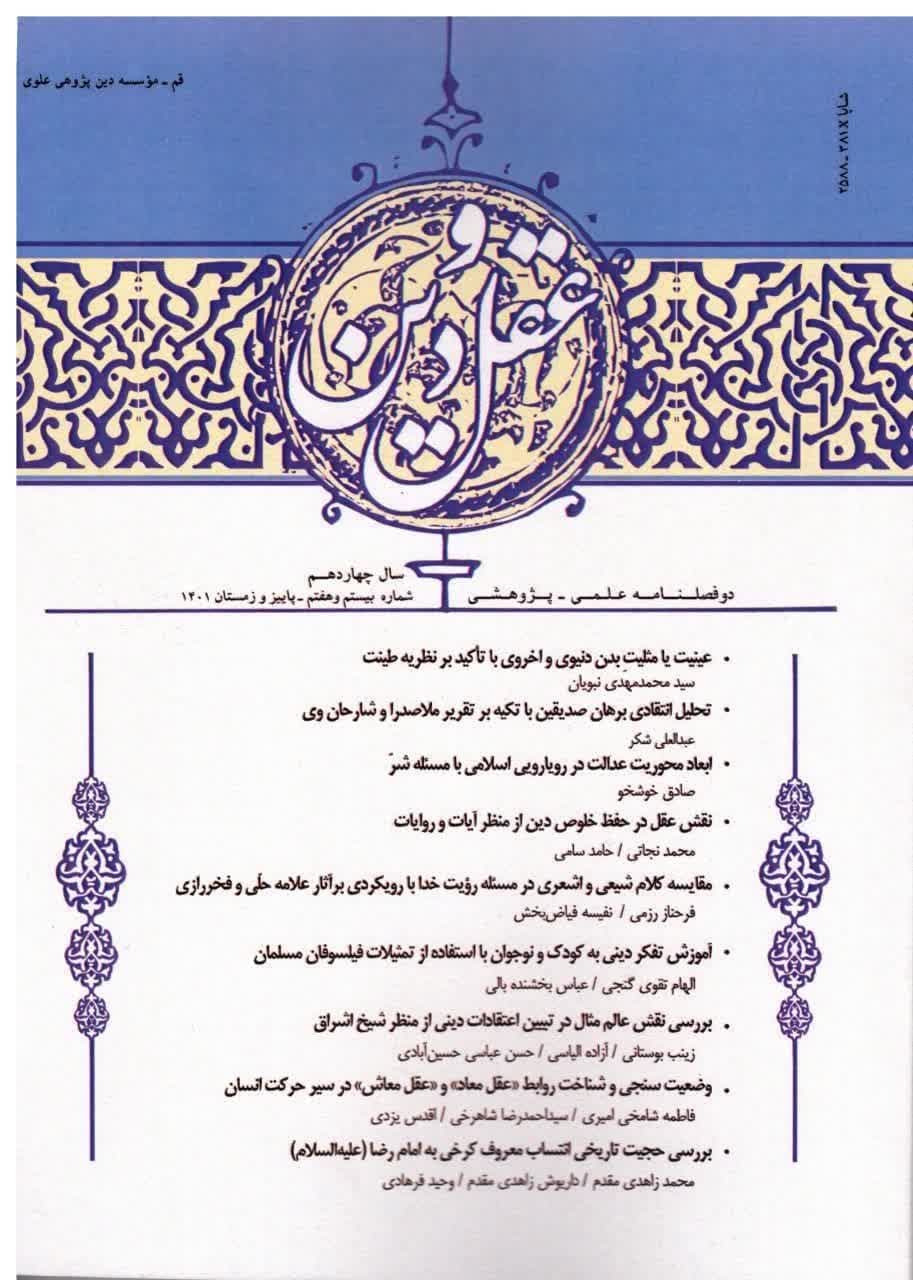 قم ـ مؤسسه دین پژوهی علوی
شاپا ۲۵۸۸-۳۸۱X
عقل و دین
سال چهاردهم
دوفصلنامه علمی ـ پژوهشی
شماره بیستم وهفتم ـ پاییز و زمستان ۱۴۰۱
• عینیت یا مثلیتِ بدن دنیوی و اخروی با تأکید بر نظریه طینت
سید محمدمهدی نبویان
• تحلیل انتقادی برهان صدیقین با تکیه بر تقریر ملاصدرا و شارحان وی
عبدالعلی شکر
• ابعاد محوریت عدالت در رویارویی اسلامی با مسئله شرّ
صادق خوشخو
• نقش عقل در حفظ خلوص دین از منظر آیات و روایات
محمد نجاتی / حامد سامی
• مقایسه کلام شیعی و اشعری در مسئله رؤیت خدا با رویکردی برآثار علامه حلّی و فخررازی
فرحناز رزمی / نفیسه فیاض‌بخش
• آموزش تفکر دینی به کودک و نوجوان با استفاده از تمثیلات فیلسوفان مسلمان
الهام تقوی گنجی / عباس بخشنده بالی
• بررسی نقش عالم مثال در تبیین اعتقادات دینی از منظر شیخ اشراق
زینب بوستانی / آزاده الیاسی / حسن عباسی حسین‌آبادی
• وضعیت سنجی و شناخت روابط «عقل معاد» و «عقل معاش» در سیر حرکت انسان
فاطمه شامخی امیری / سیداحمدرضا شاهرخی / اقدس یزدی
• بررسی حجیت تاریخی انتساب معروف کرخی به امام رضا (علیه‌السلام)
محمد زاهدی مقدم / داریوش زاهدی مقدم / وحید فرهادی